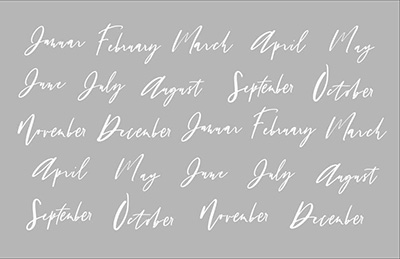 Januar February March April May
June July August September October
November December Januar February March
April May June July August
September October November December